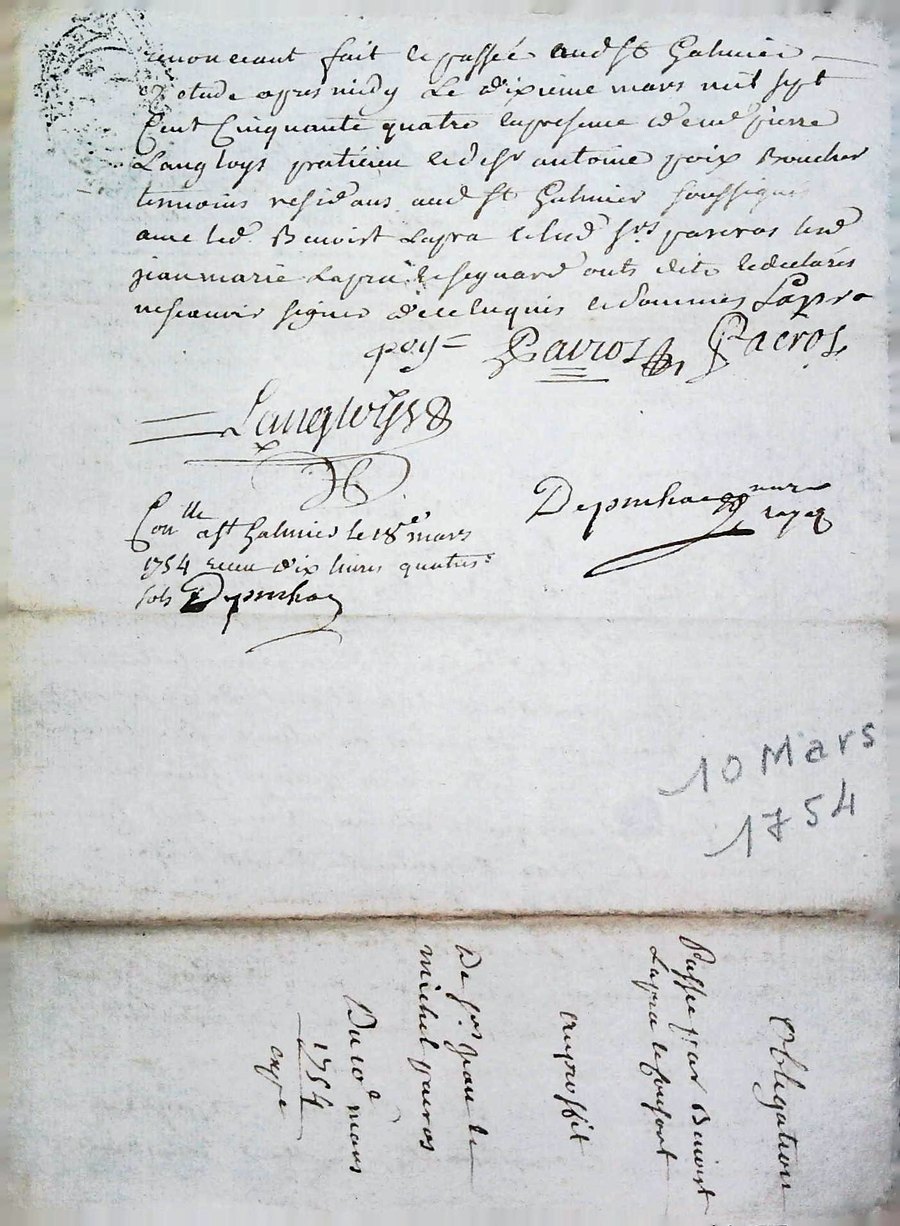 renonceant fait et passé aud St Galmier
Etude apres midy Le dixieme mars mil sept
Cent Cinquante quatre en presence de me pierre
Langloys praticien et de sr antoine poix Boucher
temoins residans aud St Galmier soussignés
avec led. Benoist Lapra et lesd srs pacros lesd
jean marie Lapra
ne scavoir signer de ce enquis et sommés Lapra
poy= Pacros Pacros
Langloys
not re
royal
Con lle a St Galmier le 18e mars
1754 receu dix livres quatre
sols
10 Mars
1754
Obligation
Passée par Benoist
Lapra et consort
au proffit
De srs jean et
michel pacros
Du 10e mars
1754